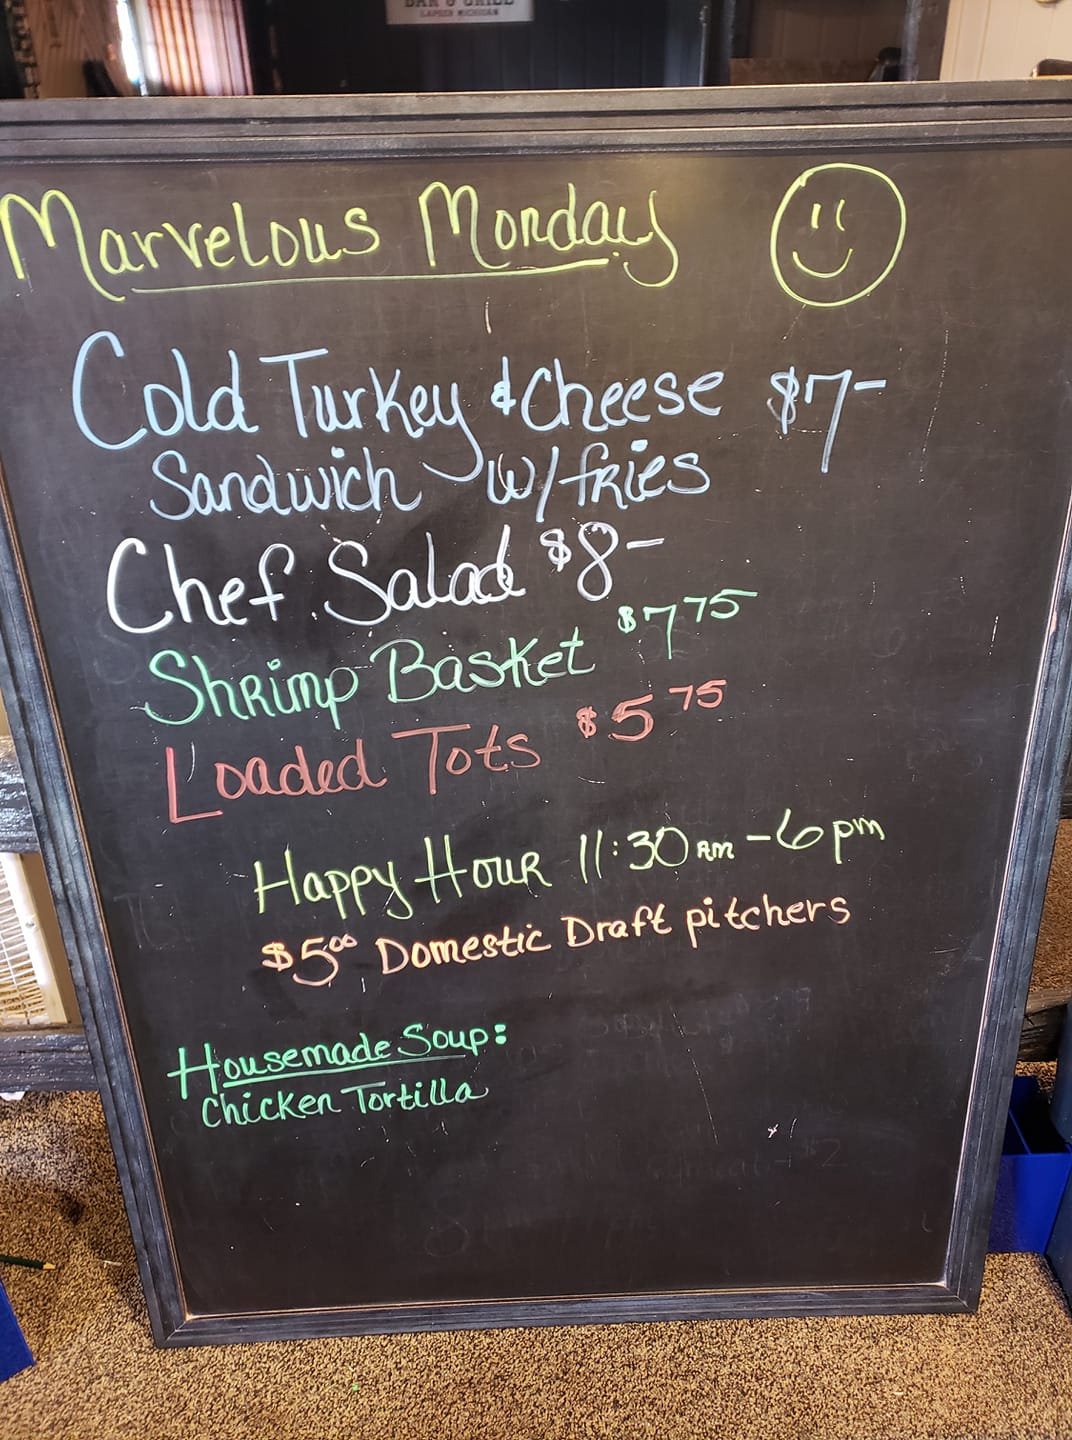 BAR & GRILL
LAPEER MICHIGAN
Marvelous Monday
Cold Turkey & Cheese $7-
Sandwich w/ fries
Chef Salad $8-
Shrimp Basket $7 75
Loaded Tots $5 75
Happy Hour 11:30 am - 6 pm
$5.00 Domestic Draft pitchers
Housemade Soup:
Chicken Tortilla